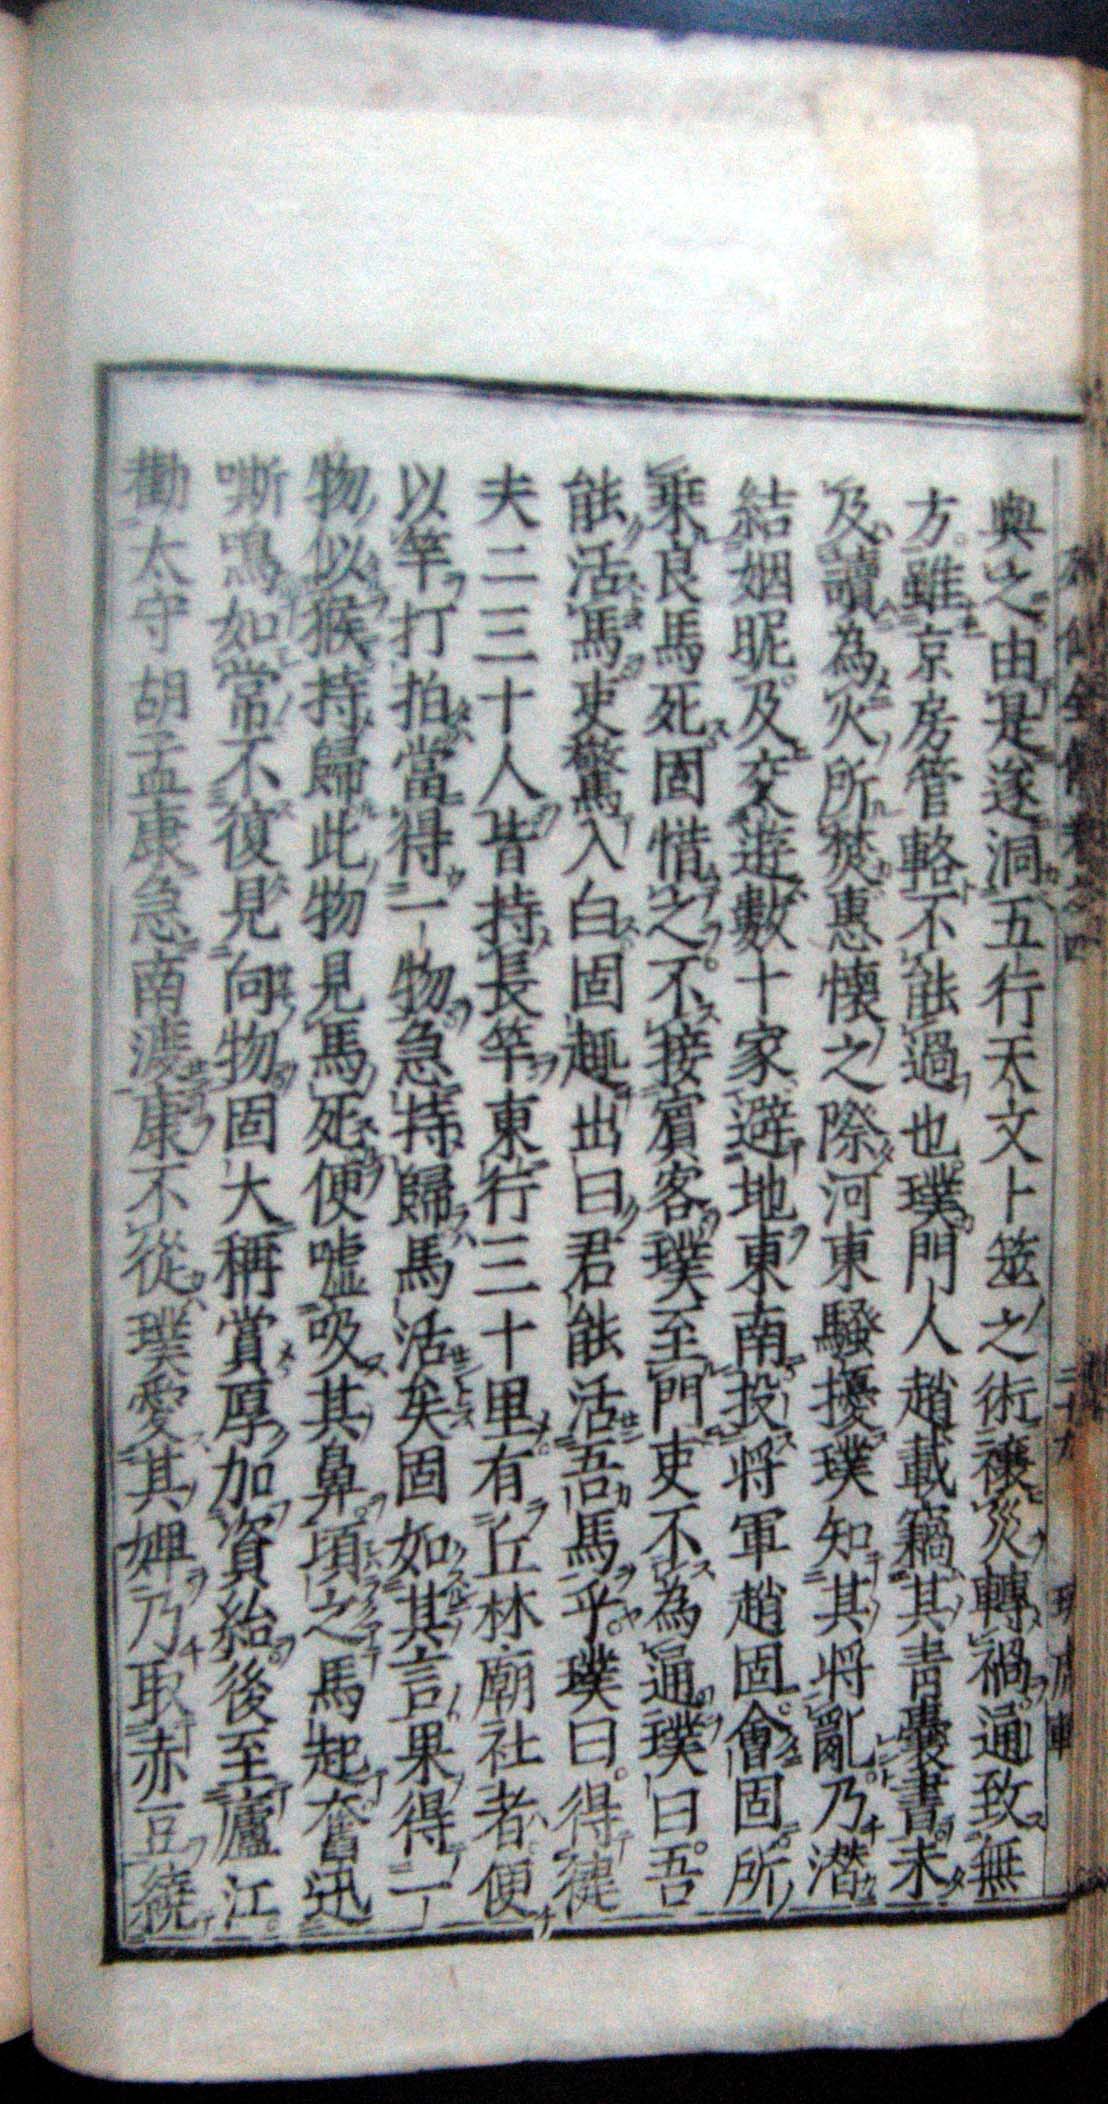 與之由是遂洞五行天文卜筮之術禳災轉禍通致無
方。雖京房管輅不能過也。璞門人趙載竊其青囊書未
及讀為火所焚惠懷之際河東騷擾璞知其將亂乃潛
結姻昵及交遊數十家避地東南投将軍趙固會固所
乗良馬死固惜之。不接賓客璞至門吏不為通璞曰。吾
能活馬吏驚入白固趣出曰君能活吾馬乎。璞曰。得健
夫二三十人皆持長竿東行三十里有丘林廟社者便
以竿打拍當得一物急持歸馬活矣固如其言果得一
物似猴持歸此物見馬死便嘘吸其鼻。頃之馬起奮迅
嘶鳴如常不復見向物固大稱賞厚加資給。後至廬江。
勸太守胡孟康急南渡康不從璞愛其婢乃取赤豆繞